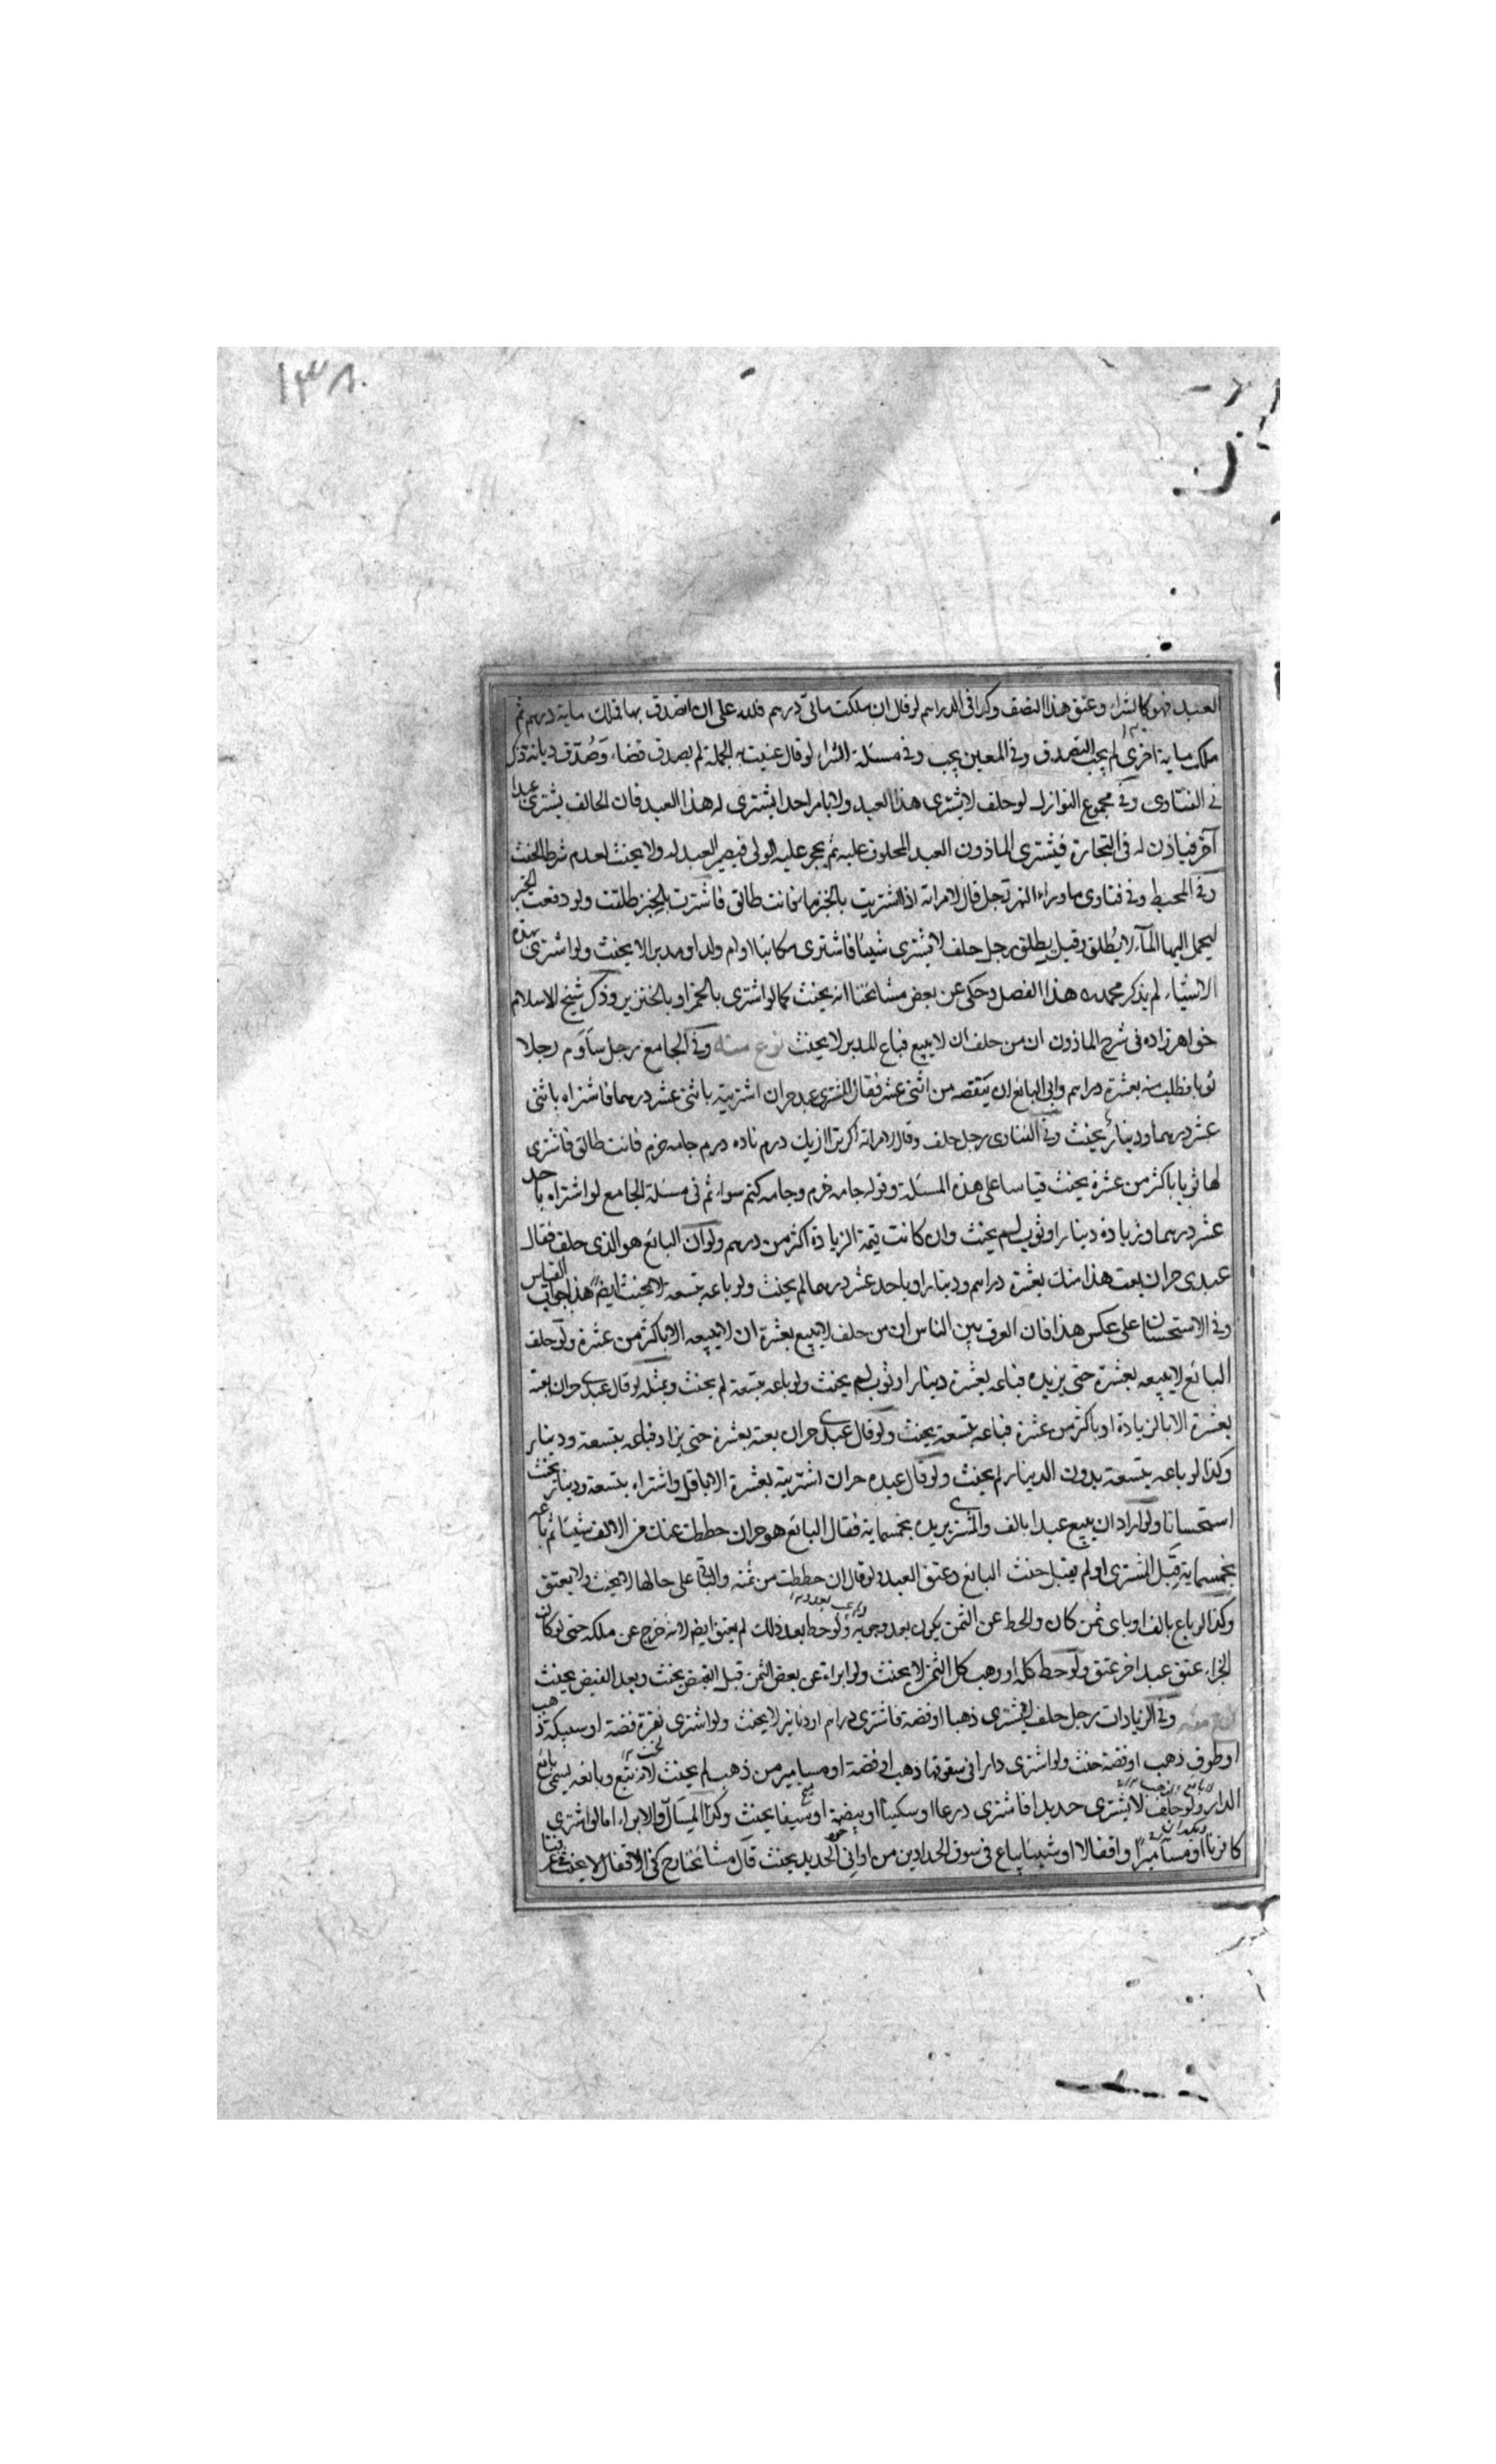 ١٣٨
العبد فهو كالشراء وعتق هذا النصف وكذا فى الدراهم لو قال ان ملكت مائتى درهم فلله على ان اتصدق بها فملك ماية درهم ثم
ملك ماية اخرى لم يجب التصدق وفى المعين يجب وفى مسئلة الشراء لو قال عنيت به الجملة لم يصدق قضاء وصُدّق ديانة ذكر
فى الفتاوى وفى مجموع النوازل لو حلف لا يشترى هذا العبد ولا يامر احدا يشترى له هذا العبد فان الحالف يشترى عبدا
آخر فياذن له فى التجارة فيشترى الماذون العبد المحلوف عليه ثم يحجر عليه المولى فيصير العبد له ولا يحنث لعدم شرط الحنث
وفى المحيط وفى فتاوى ما وراء النهر رجل قال لامراته اذا اشتريت بالخبز ماء فانت طالق فاشترت بالخبز طلقت ولو دفعت الخبز
ليحمل اليها الماء لا يُطلق وقيل يطلق رجل حلف لا يشترى شيئا فاشترى مكاتبا او ام ولد او مدبرا لا يحنث ولو اشترى بهذه
الاشياء لم يذكر محمد ره هذا الفصل وحكى عن بعض مشائخنا انه يحنث كما لو اشترى بالخمر او بالخنزير وذكر شيخ الاسلام
خواهرزاده فى شرح الماذون ان من حلف ان لا يبيع فباع المدبر لا يحنث نوع منه وفى الجامع رجل ساوم رجلا
ثوبا فطلب منه بعشرة دراهم وابى البائع ان ينقصه من اثنى عشر فقال المشترى عبده حر ان اشتريته باثنى عشر درهما فاشتراه باثنى
عشر درهما ودينار يحنث وفى الفتاوى رجل حلف وقال لامراته اكر ترا از يك درم تاده درم جامه خرم فانت طالق فاشترى
لها ثوبا باكثر من عشرة يحنث قياسا على هذه المسئلة وقوله جامه خرم وجامه كنم سواء ثم فى مسئلة الجامع لو اشتراه باحد
عشر درهما وزيادة دينار او ثوب لم يحنث وان كانت قيمة الزيادة اكثر من درهم ولو ان البائع هو الذى حلف فقال
عبدى حر ان بعت هذا منك بعشرة دراهم ودينار او باحد عشر درهما لم يحنث ولو باعه بتسعة لا يحنث ايضا هذا جواب القياس
وفى الاستحسان على عكس هذا فان العرف بين الناس ان من حلف لا يبيع بعشرة ان لا يبيعه الا باكثر من عشرة ولو حلف
البائع لا يبيعه بعشرة حتى يزيده فباعه بعشرة دينار او ثوب لم يحنث ولو باعه بتسعة لم يحنث وبمثله لو قال عبدى حر ان بعته
بعشرة الا بالزيادة او باكثر من عشرة فباعه بتسعة يحنث ولو قال عبدى حر ان بعته بعشرة حتى يزاد فباعه بتسعة ودينار
وكذا لو باعه بتسعة بدون الدينار لم يحنث ولو قال عبده حر ان اشتريته بعشرة الا باقل واشتراه بتسعة ودينار يحنث
استحسانا ولو اراد ان يبيع عبدا بالف والمشترى يريده بخمسماية فقال البائع هو حر ان حططت عنك من الالف شيئا ثم باعه
بخمسماية قبل المشترى او لم يقبل حنث البائع وعتق العبد ولو قال ان حططت من ثمنه والباقى على حالها لا يحنث ولا يعتق
وكذا لو باع بالف او باى ثمن كان والحط عن الثمن يكون بعد وجوبه ولو حط بعد ذلك لم يعتق ايضا لانه خرج عن ملكه حتى لو كان
الجزاء عتق عبد اخر عتق ولو حط كله او وهب كل الثمن لا يحنث ولو ابراه عن بعض الثمن قبل القبض يحنث وبعد القبض يحنث
نوع منه وفى الزيادات رجل حلف لا يشترى ذهبا او فضة فاشترى دراهم او دنانير لا يحنث ولو اشترى نقرة فضة او سبيكة ذهب
او طوق ذهب او فضة حنث ولو اشترى دارا فى سقوفها ذهب او فضة او مسامير من ذهب لم يحنث لانه تبع وبائعه يسمى بائع
الدار ولو حلف لا يشترى حديدا فاشترى درعا او سكينا او بيضة او سيفا يحنث وكذا المسال والابر اما لو اشترى
كانونا او مسامير او اقفالا او شيئا يباع فى سوق الحدادين من اوانى الحديد يحنث قال مشائخنا رح فى الاقفال لا يحنث فى عرفنا